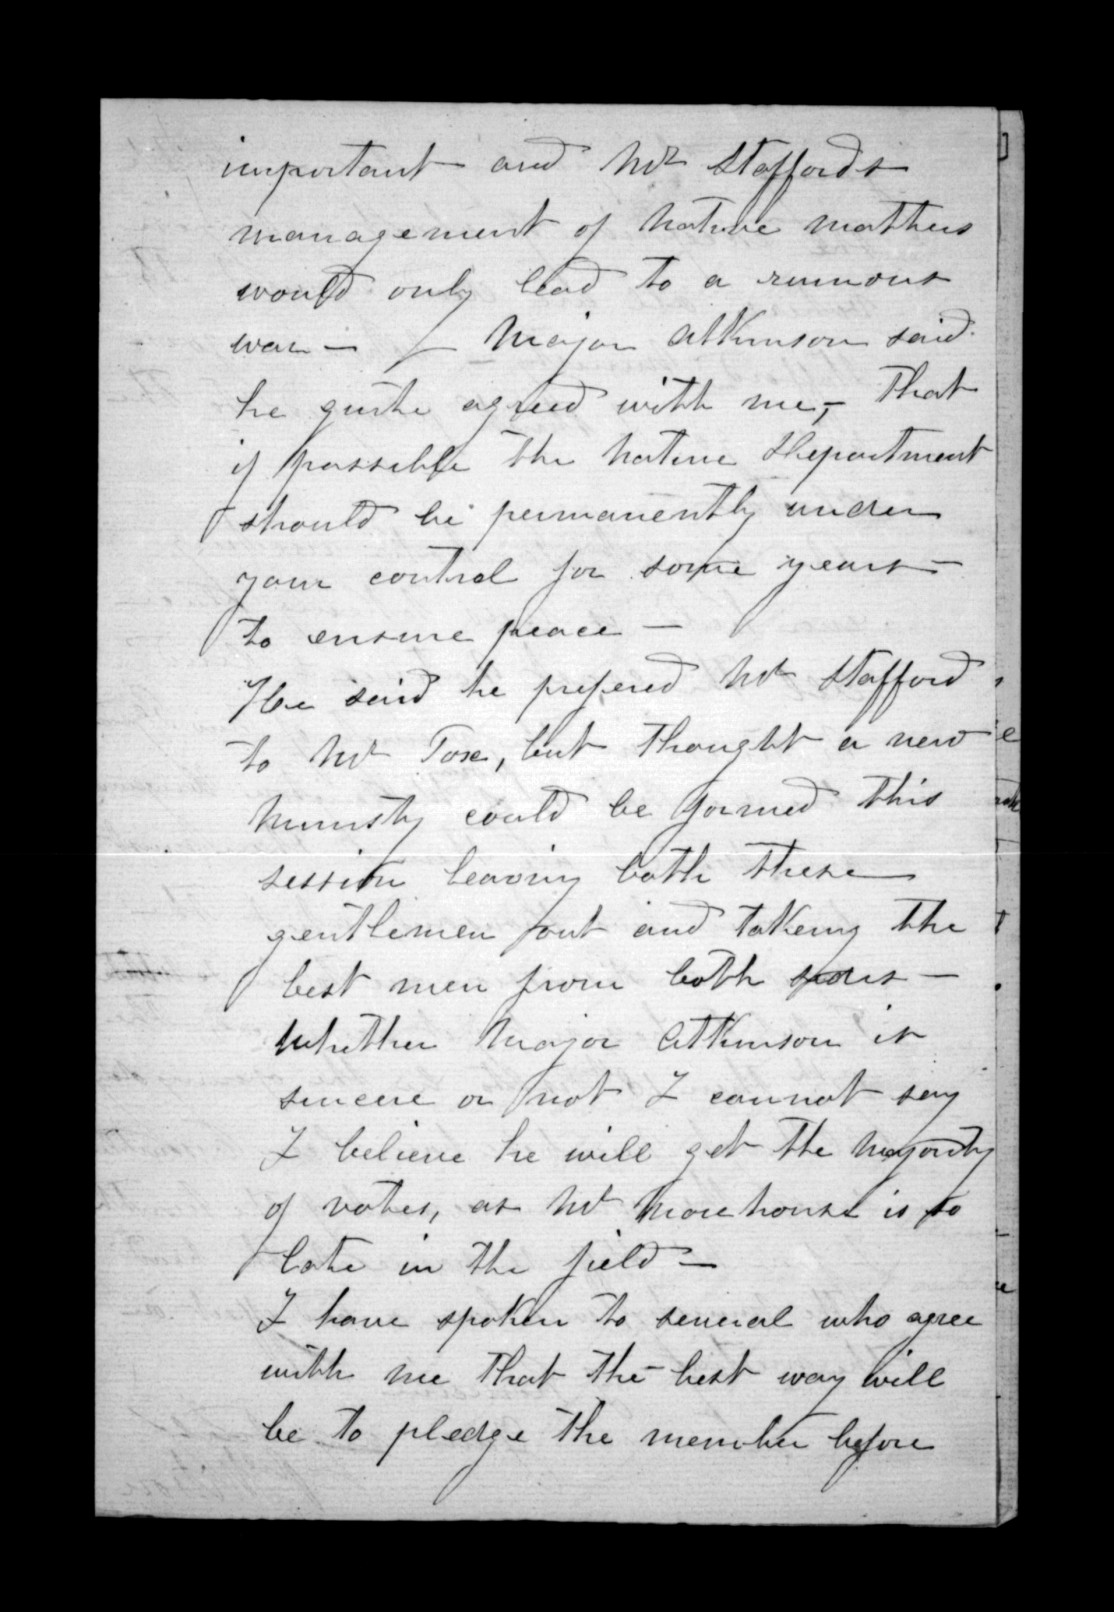 important and Mr Staffords
management of Native matters
would only lead to a ruinous
war — Major Atkinson said
he quite agreed with me, — that
if possible the Native Department
should be permanently under
your control for some years —
to ensure peace —
He said he prefered Mr Stafford
to Mr Fox, but thought a new
Ministy could be formed this
session leaving both these
gentlemen out and takeing the
best men from both sides —
Whether Major Atkinson is
sincere or not I cannot say
I believe he will get the majority
of votes, as Mr Morehouse is so
late in the field —
I have spoken to several who agree
with me that the best way will
be to pledge the member before